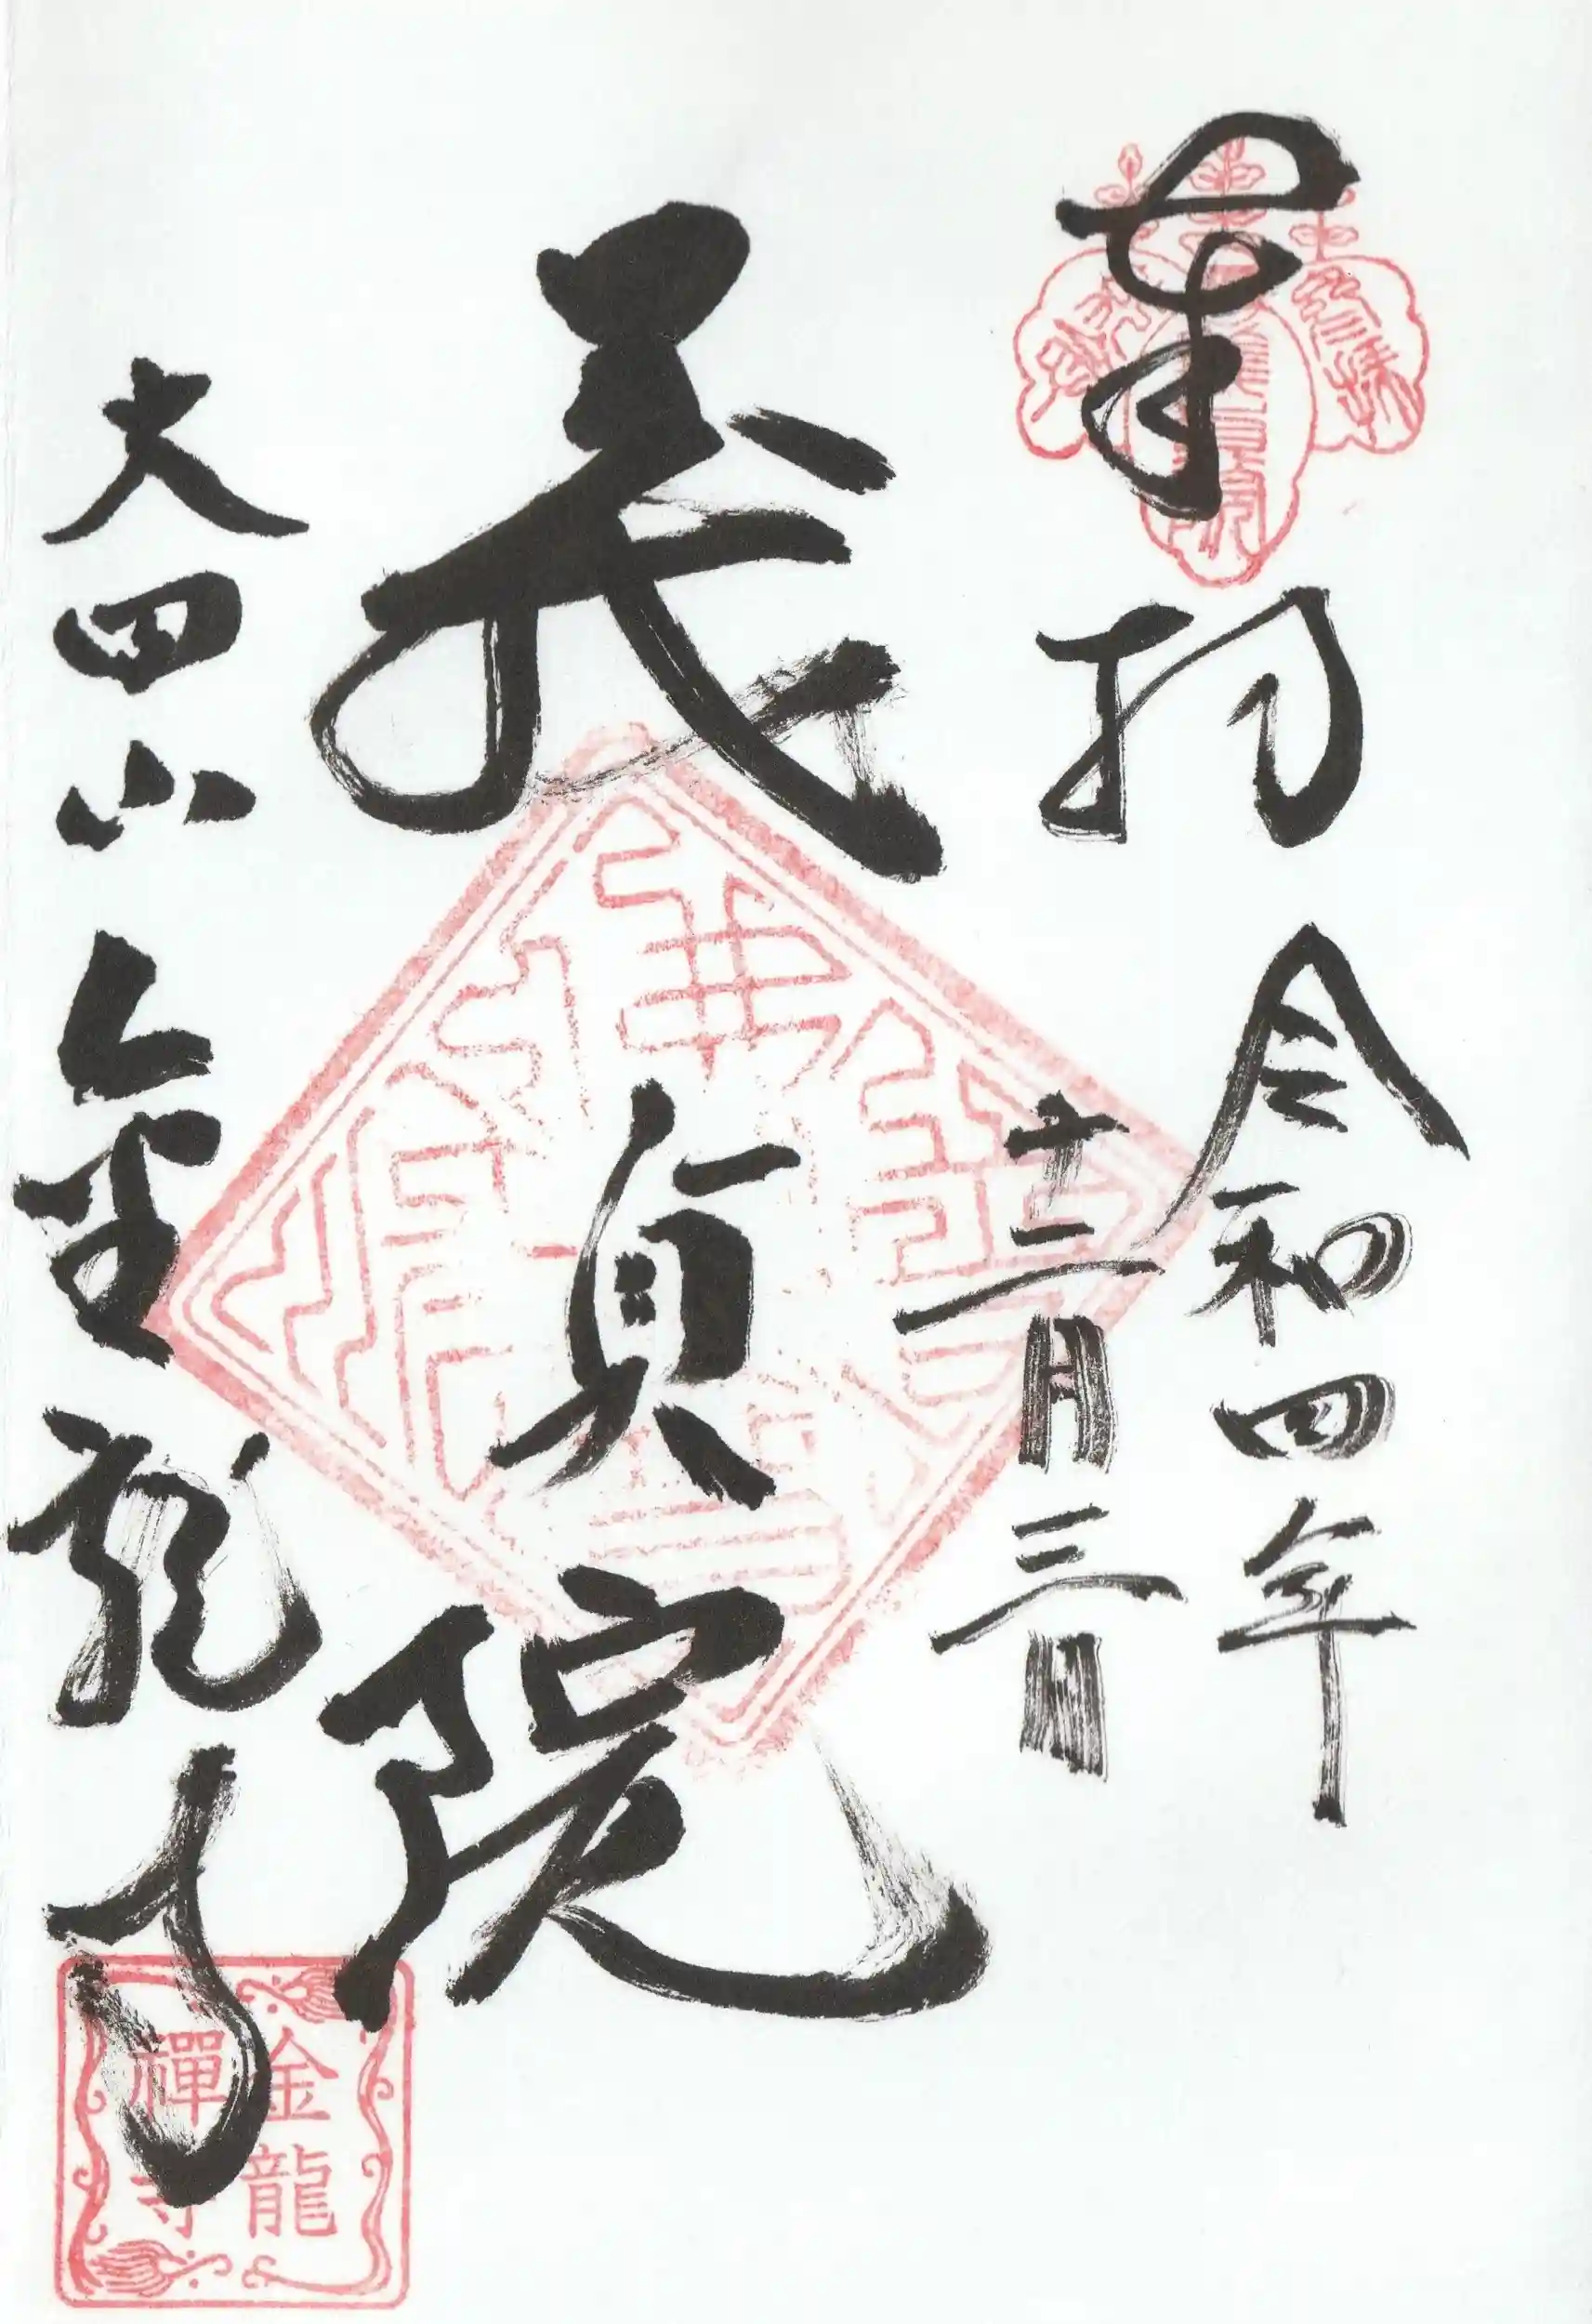 奉拝 令和四年
十二月三日
義貞院
大田山 金龍寺
金龍
禪寺